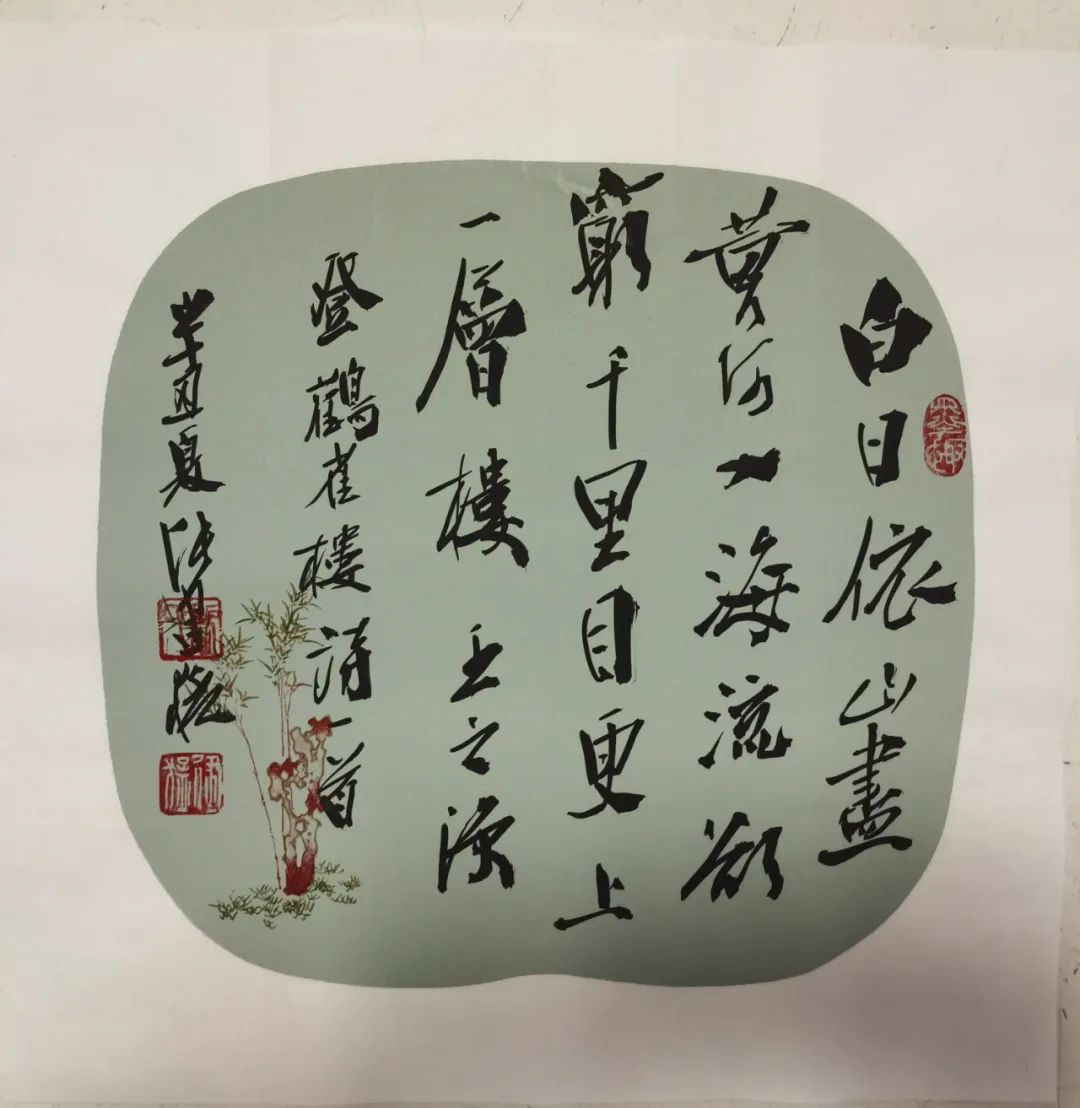 白日依山盡
黄河入海流欲
窮千里目更上
一層樓王之渙
登鸛雀樓詩一首
辛丑夏